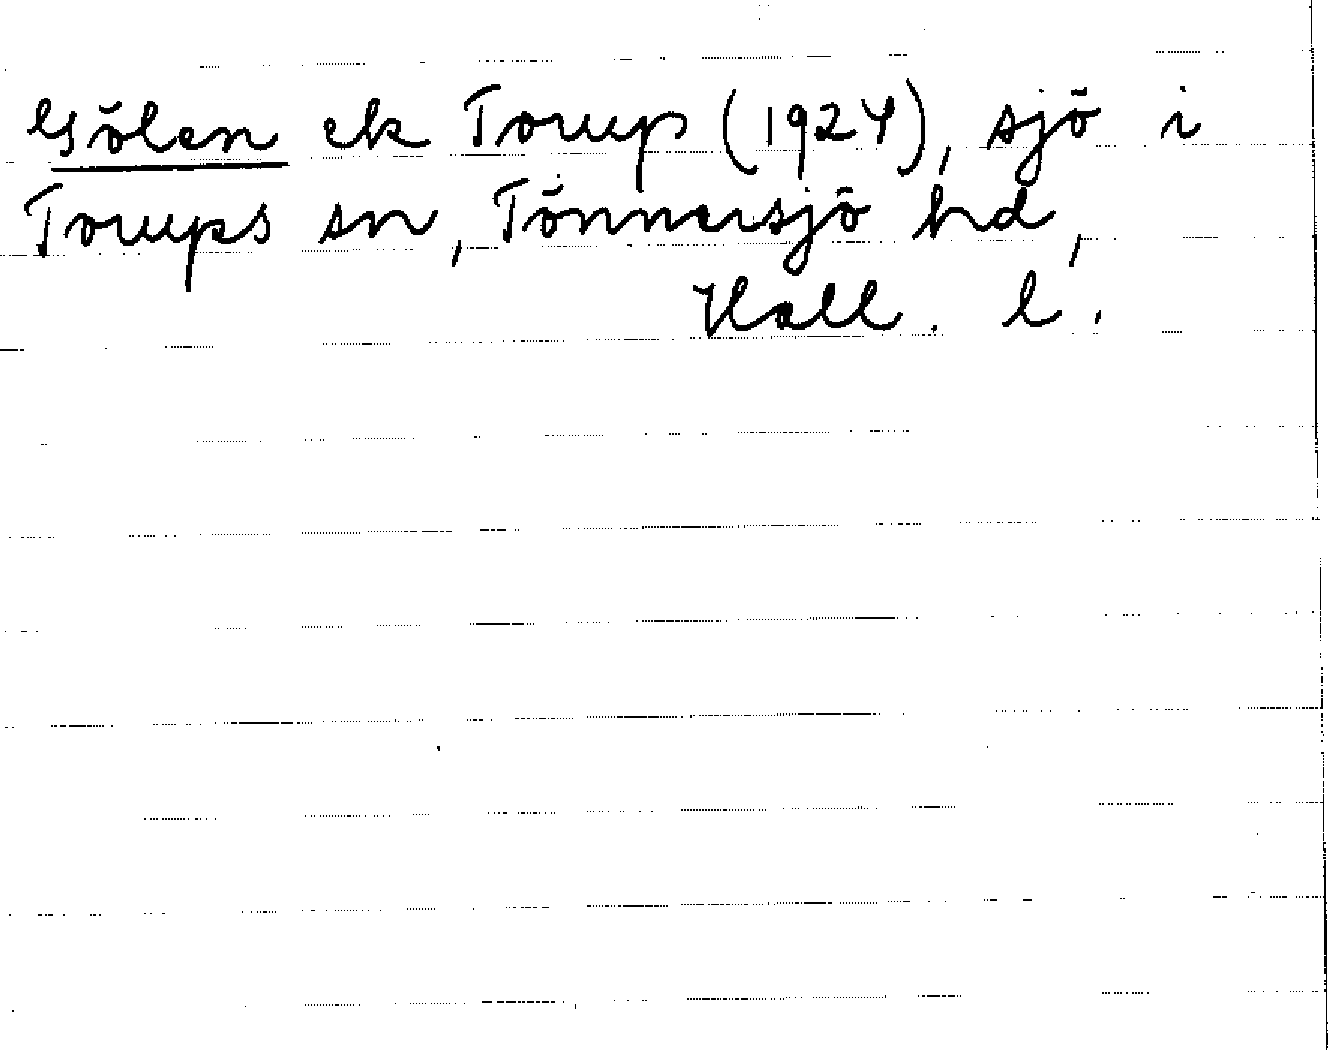 Gölen ek Torup (1924), sjö i
Torups sn, Tönnersjö hd,
Hall. l.